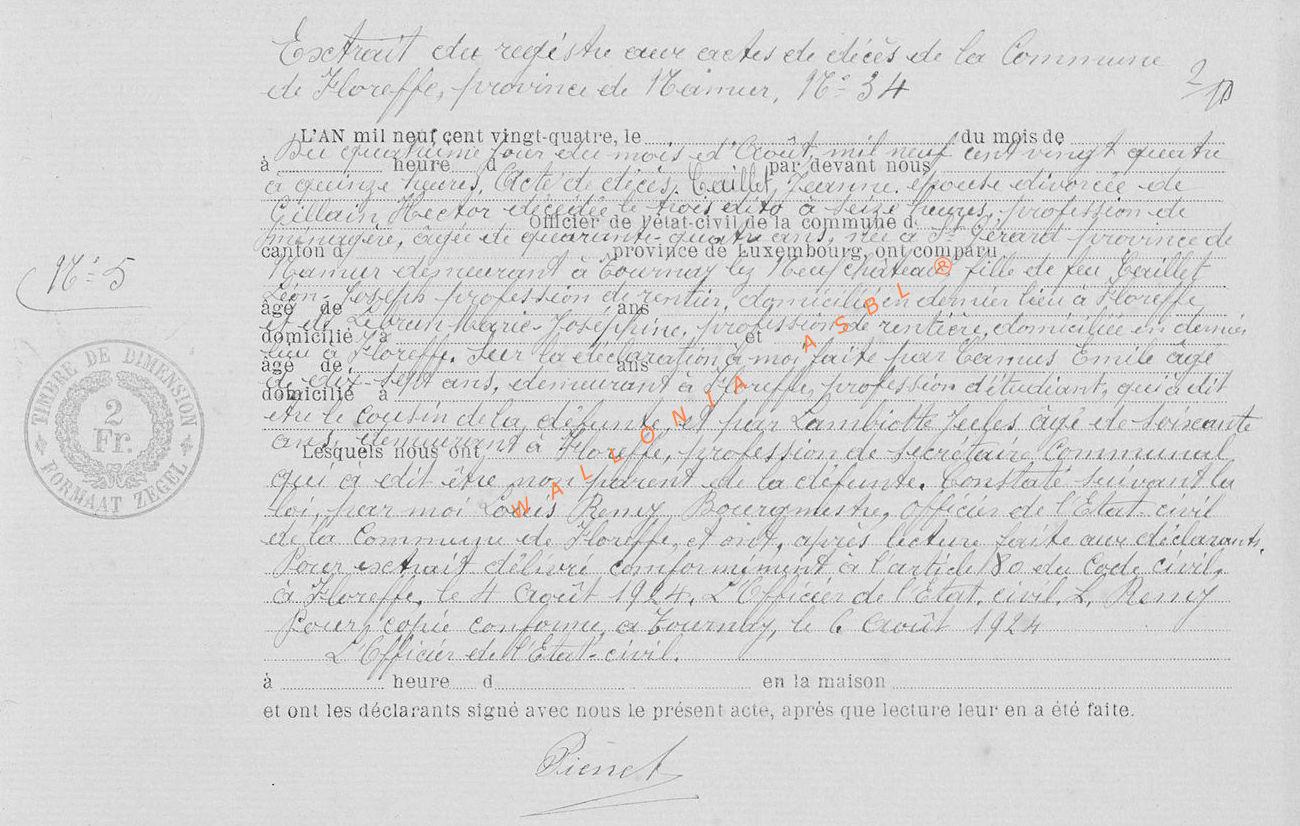 Extrait du registre aux actes de décès de la Commune
de Floreffe, province de Namur, N° 34
L'AN mil neuf cent vingt-quatre, le du mois de
Du quatrième jour du mois d'Août mil neuf cent vingt quatre
à heure d par devant nous
à quinze heures, Acte de décès, Taillet, Jeanne, épouse divorcée de
Gillain, Hector décédée le trois dito à seize heures, profession de
Officier de l'état-civil de la commune d
ménagère, âgée de quarante-quatre ans, née à St Gérard province de
canton d province de Luxembourg, ont comparu
Namur demeurant à Tournay lez Neufchâteau, fille de feu Taillet
Léon-Joseph profession de rentier, domicilié en dernier lieu à Floreffe
âgé de ans
et de Lebrun Marie-Joséphine, profession de rentière, domiciliée en dernier
domicilié à et
lieu à Floreffe. Sur la déclaration à moi faite par Camus Emile âgé
âgé de ans
de dix-sept ans, demeurant à Floreffe, profession d'étudiant, qui à dit
domicilié à
être le cousin de la défunte, et par Lambiotte Jules âgé de soixante
ans, demeurant à Floreffe, profession de secrétaire Communal
Lesquels nous ont
qui à dit être non parent de la défunte. Constaté suivant la
loi, par moi Louis Remy Bourgmestre, Officier de l'Etat-civil
de la Commune de Floreffe, et ont, après lecture faite aux déclarants.
Pour extrait délivré conformément à l'article 80 du Code civil,
à Floreffe, le 4 Août 1924. L'Officier de l'Etat-civil. L. Remy
Pour copie conforme, à Tournay, le 6 Août 1924
L'Officier de l'Etat-civil.
à heure d en la maison
et ont les déclarants signé avec nous le présent acte, après que lecture leur en a été faite.
N° 5
TIMBRE DE DIMENSION
2
Fr.
FORMAAT ZEGEL
WALLONIA ASBL ®